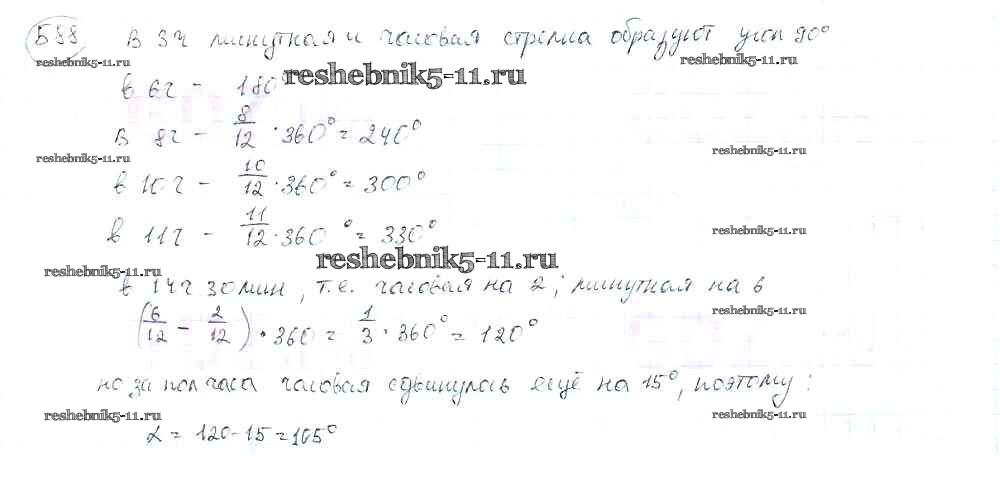 588 В 3ч минутная и часовая стрелка образуют угол 90°
reshebnik5-11.ru reshebnik5-11.ru
в 6ч - 180° reshebnik5-11.ru
в 8ч - 8/12 · 360° = 240°
reshebnik5-11.ru reshebnik5-11.ru
в 10ч - 10/12 · 360° = 300°
в 11ч - 11/12 · 360° = 330°
reshebnik5-11.ru
reshebnik5-11.ru reshebnik5-11.ru
в 14ч 30мин, т.е. часовая на 2; минутная на 6
reshebnik5-11.ru
(6/12 - 2/12) · 360 = 1/3 · 360° = 120°
но за полчаса часовая сдвинулась ещё на 15°, поэтому:
reshebnik5-11.ru reshebnik5-11.ru
α = 120-15=105°